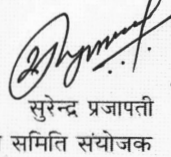 सुरेन्द्र प्रजापती
समिति संयोजक